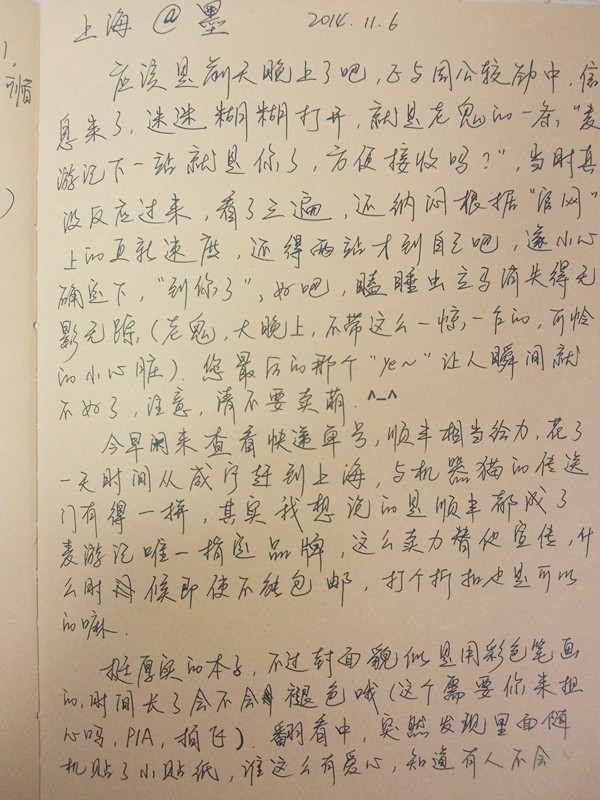 上海 @ 墨 2014.11.6
应该是前天晚上了吧,正与周公较劲中,信
息来了,迷迷糊糊打开,就是老鬼的一条"麦
游记下一站就是你了,方便接收吗?",当时真
没反应过来,看了三遍,还纳闷根据"官网"
上的更新速度,还得两站才到自己吧,遂小心
确定下,"到你了",好吧,瞌睡虫立马消失得无
影无踪(老鬼,大晚上,不带这么一惊一乍的,可怜
的小心脏)。您最后的那个"ye~"让人瞬间就
不好了,注意,请不要卖萌。^_^
今早闲来查看快递单号,顺丰相当给力,花了
一天时间从咸宁赶到上海,与机器猫的传送
门有得一拼,其实我想说的是顺丰都成了
麦游记唯一指定品牌,这么卖力替他宣传,什
么时候即使不能包邮,打个折扣也是可以
的嘛.
挺厚实的本子,不过封面貌似是用彩色笔画
的,时间长了会不会褪色哦(这个需要你来担
心吗,PIA,拍飞).翻看中,突然发现里面随
机贴了小贴纸,谁这么有爱心,知道有人不会